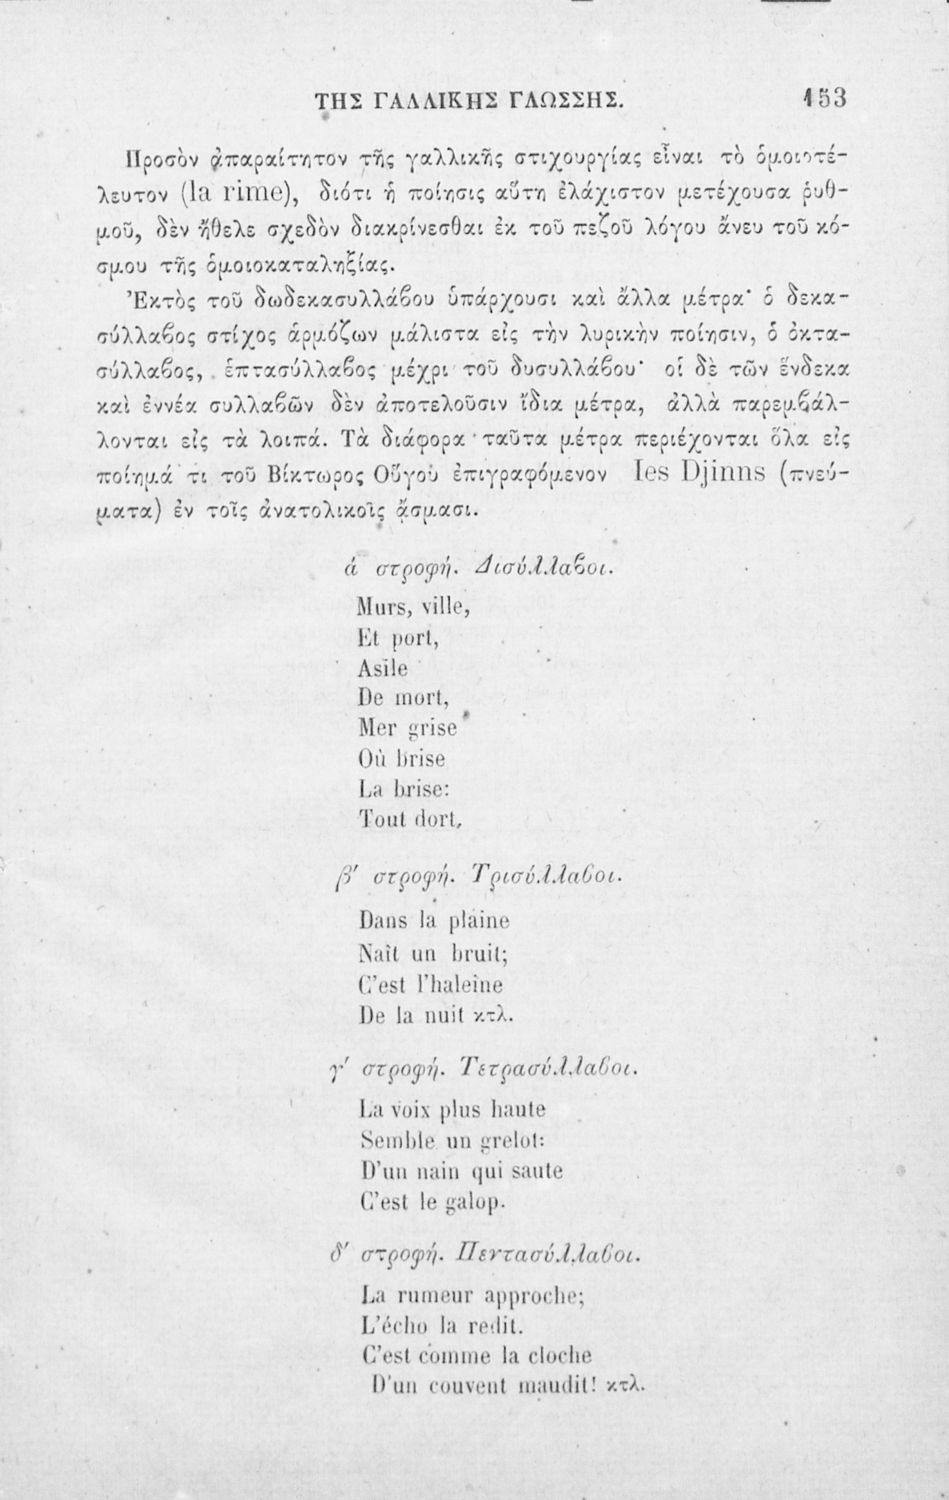 ΤΗΣ ΓΑΛΛΙΚΗΣ ΓΛΩΣΣΗΣ. 153
Προσὸν ἀπαραίτητον τῆς γαλλικῆς στιχουργίας εἶναι τὸ ὁμοιοτέ-
λευτον (la rime), διότι ἡ ποίησις αὕτη ἐλάχιστον μετέχουσα ῥυθ-
μοῦ, δὲν ἤθελε σχεδὸν διακρίνεσθαι ἐκ τοῦ πεζοῦ λόγου ἄνευ τοῦ κό-
σμου τῆς ὁμοιοκαταληξίας.
Ἐκτὸς τοῦ δωδεκασυλλάβου ὑπάρχουσι καὶ ἄλλα μέτρα· ὁ δεκα-
σύλλαβος στίχος ἁρμόζων μάλιστα εἰς τὴν λυρικὴν ποίησιν, ὁ ὀκτα-
σύλλαβος, ἑπτασύλλαβος μέχρι τοῦ δυσυλλάβου· οἱ δὲ τῶν ἕνδεκα
καὶ ἐννέα συλλαβῶν δὲν ἀποτελοῦσιν ἴδια μέτρα, ἀλλὰ παρεμβάλ-
λονται εἰς τὰ λοιπά. Τὰ διάφορα ταῦτα μέτρα περιέχονται ὅλα εἰς
ποίημά τι τοῦ Βίκτωρος Οὕγοὺ ἐπιγραφόμενον les Djinns (πνεύ-
ματα) ἐν τοῖς ἀνατολικοῖς ᾄσμασι.
ά στροφή. Δισύλλαβοι.
Murs, ville,
Et port,
Asile
De mort,
Mer grise
Où brise
La brise:
Tout dort,
β′ στροφή. Τρισύλλαβοι.
Dans la plaine
Naît un bruit;
C'est l'haleine
De la nuit κτλ.
γ′ στροφή. Τετρασύλλαβοι.
La voix plus haute
Semble un grelot:
D'un nain qui saute
C'est le galop.
δ′ στροφή. Πεντασύλλαβοι.
La rumeur approche;
L'écho la redit.
C'est comme la cloche
D'un couvent maudit! κτλ.